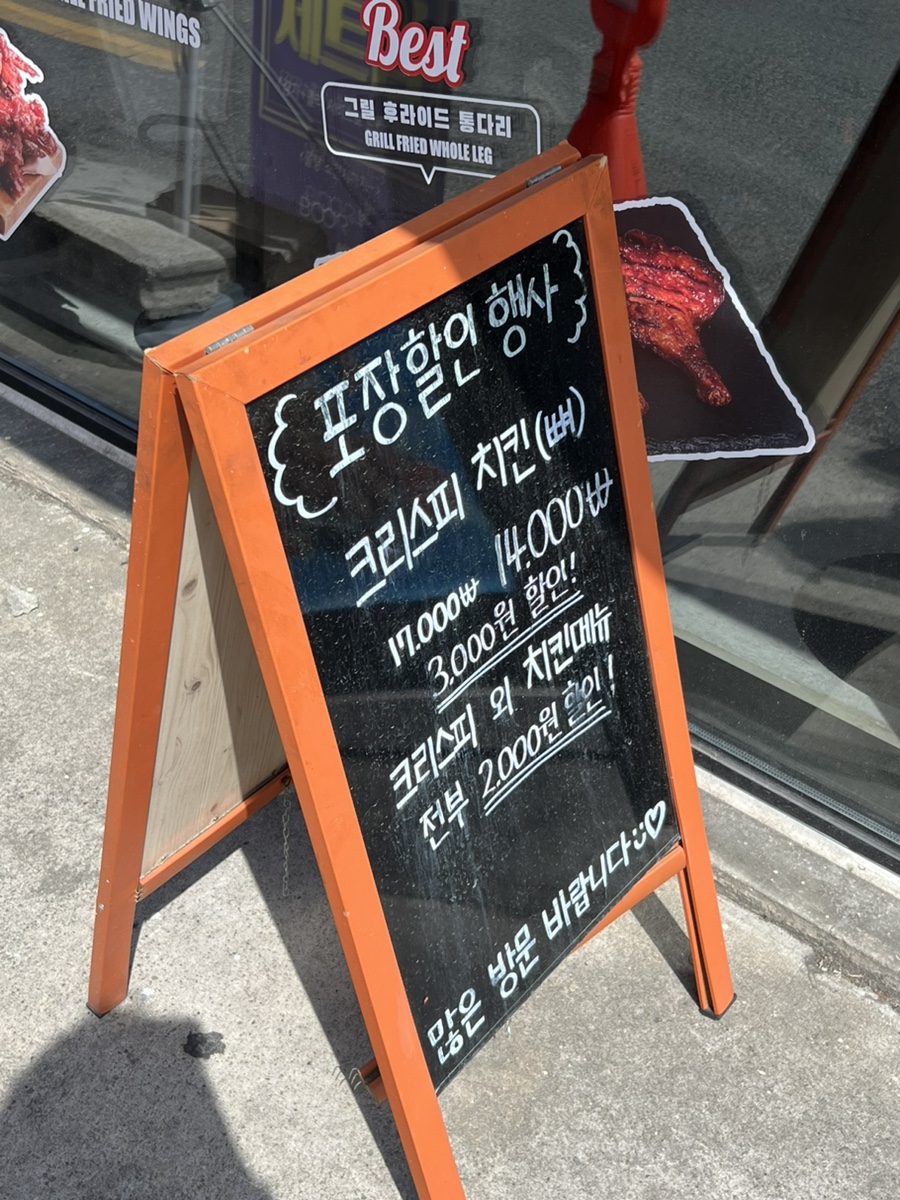 FRIED WINGS
세트
Best
그릴 후라이드 통다리
GRILL FRIED WHOLE LEG
포장할인 행사
크리스피 치킨(뼈)
17.000₩ 14.000₩
3.000원 할인!
크리스피 외 치킨메뉴
전부 2.000원 할인!
많은 방문 바랍니다:)♡